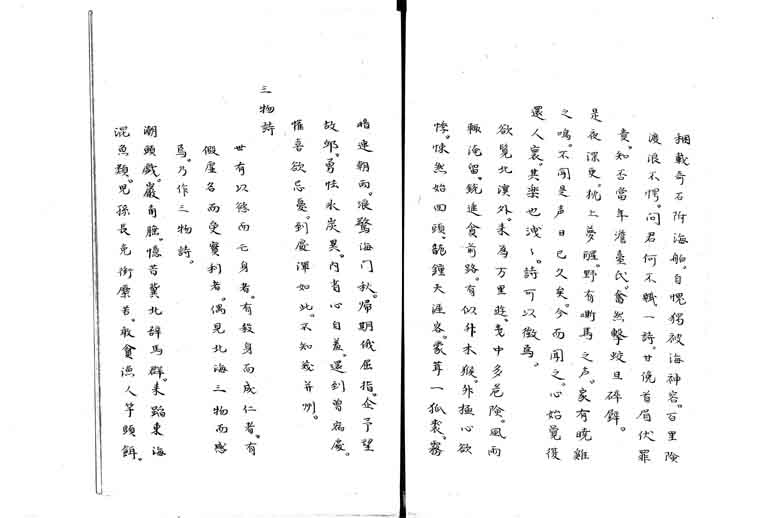 捆載奇石附海舶。自愧獨被海神容。百里險
渡浪不愕。問君何不賦一詩。甘俛首肩伏罪
責。知否當年澹臺氏。奮然擊蛟且碎璧。
是夜深更。枕上夢醒。野有嘶馬之声。家有曉雞
之鳴。不聞是声日已久矣。今而聞之。心始覺復
還人寰。其樂也洩〻。詩可以徵焉。
欲覽北溟外。来為万里遊。曳中多危險。風雨
輙淹留。銃進貪前路。有似升木猴。外極心欲
悸。悚然始回頭。龍鍾天涯客。蒙茸一狐裘。霧
暗連朝雨。浪驚海门秋。帰期俄屈指。企予望
故郷。勇怯氷炭異。内省心自羞。還到曽宿處。
惟喜欲忘憂。到處渾如此。不知幾并州。
三物詩
世有以慾而亡身者。有殺身而成仁者。有
假虚名而受實利者。偶見北海三物而感
焉。乃作三物詩。
潮頭戯。巖角臨。憶昔冀北辞馬群。来蹈東海
混魚類。児孫長免銜橜苦。敢貪漁人竿頭餌。